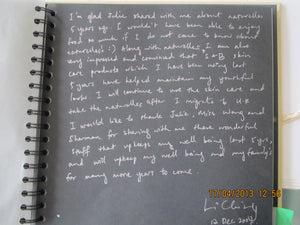 I'm glad Julie shared with me about naturalles
5 years ago. I wouldn't have been able to enjoy
food so much if I do not come to know about
naturalles! :) Along with naturalles, I am also
very impressed and convinced that S&B skin
care products which I have been using last
5 years have helped maintain my youthful
looks. I will continue to use the skin care and
take the naturalles after I migrate to U.K
I would like to thank Julie, Miss Wang and
Sharman for sharing with me these wonderful
stuff that upkeeps my well being last 5 yrs,
and will upkeep my well being and my family's
for many more years to come.
17/04/2013 12:56
12 Dec